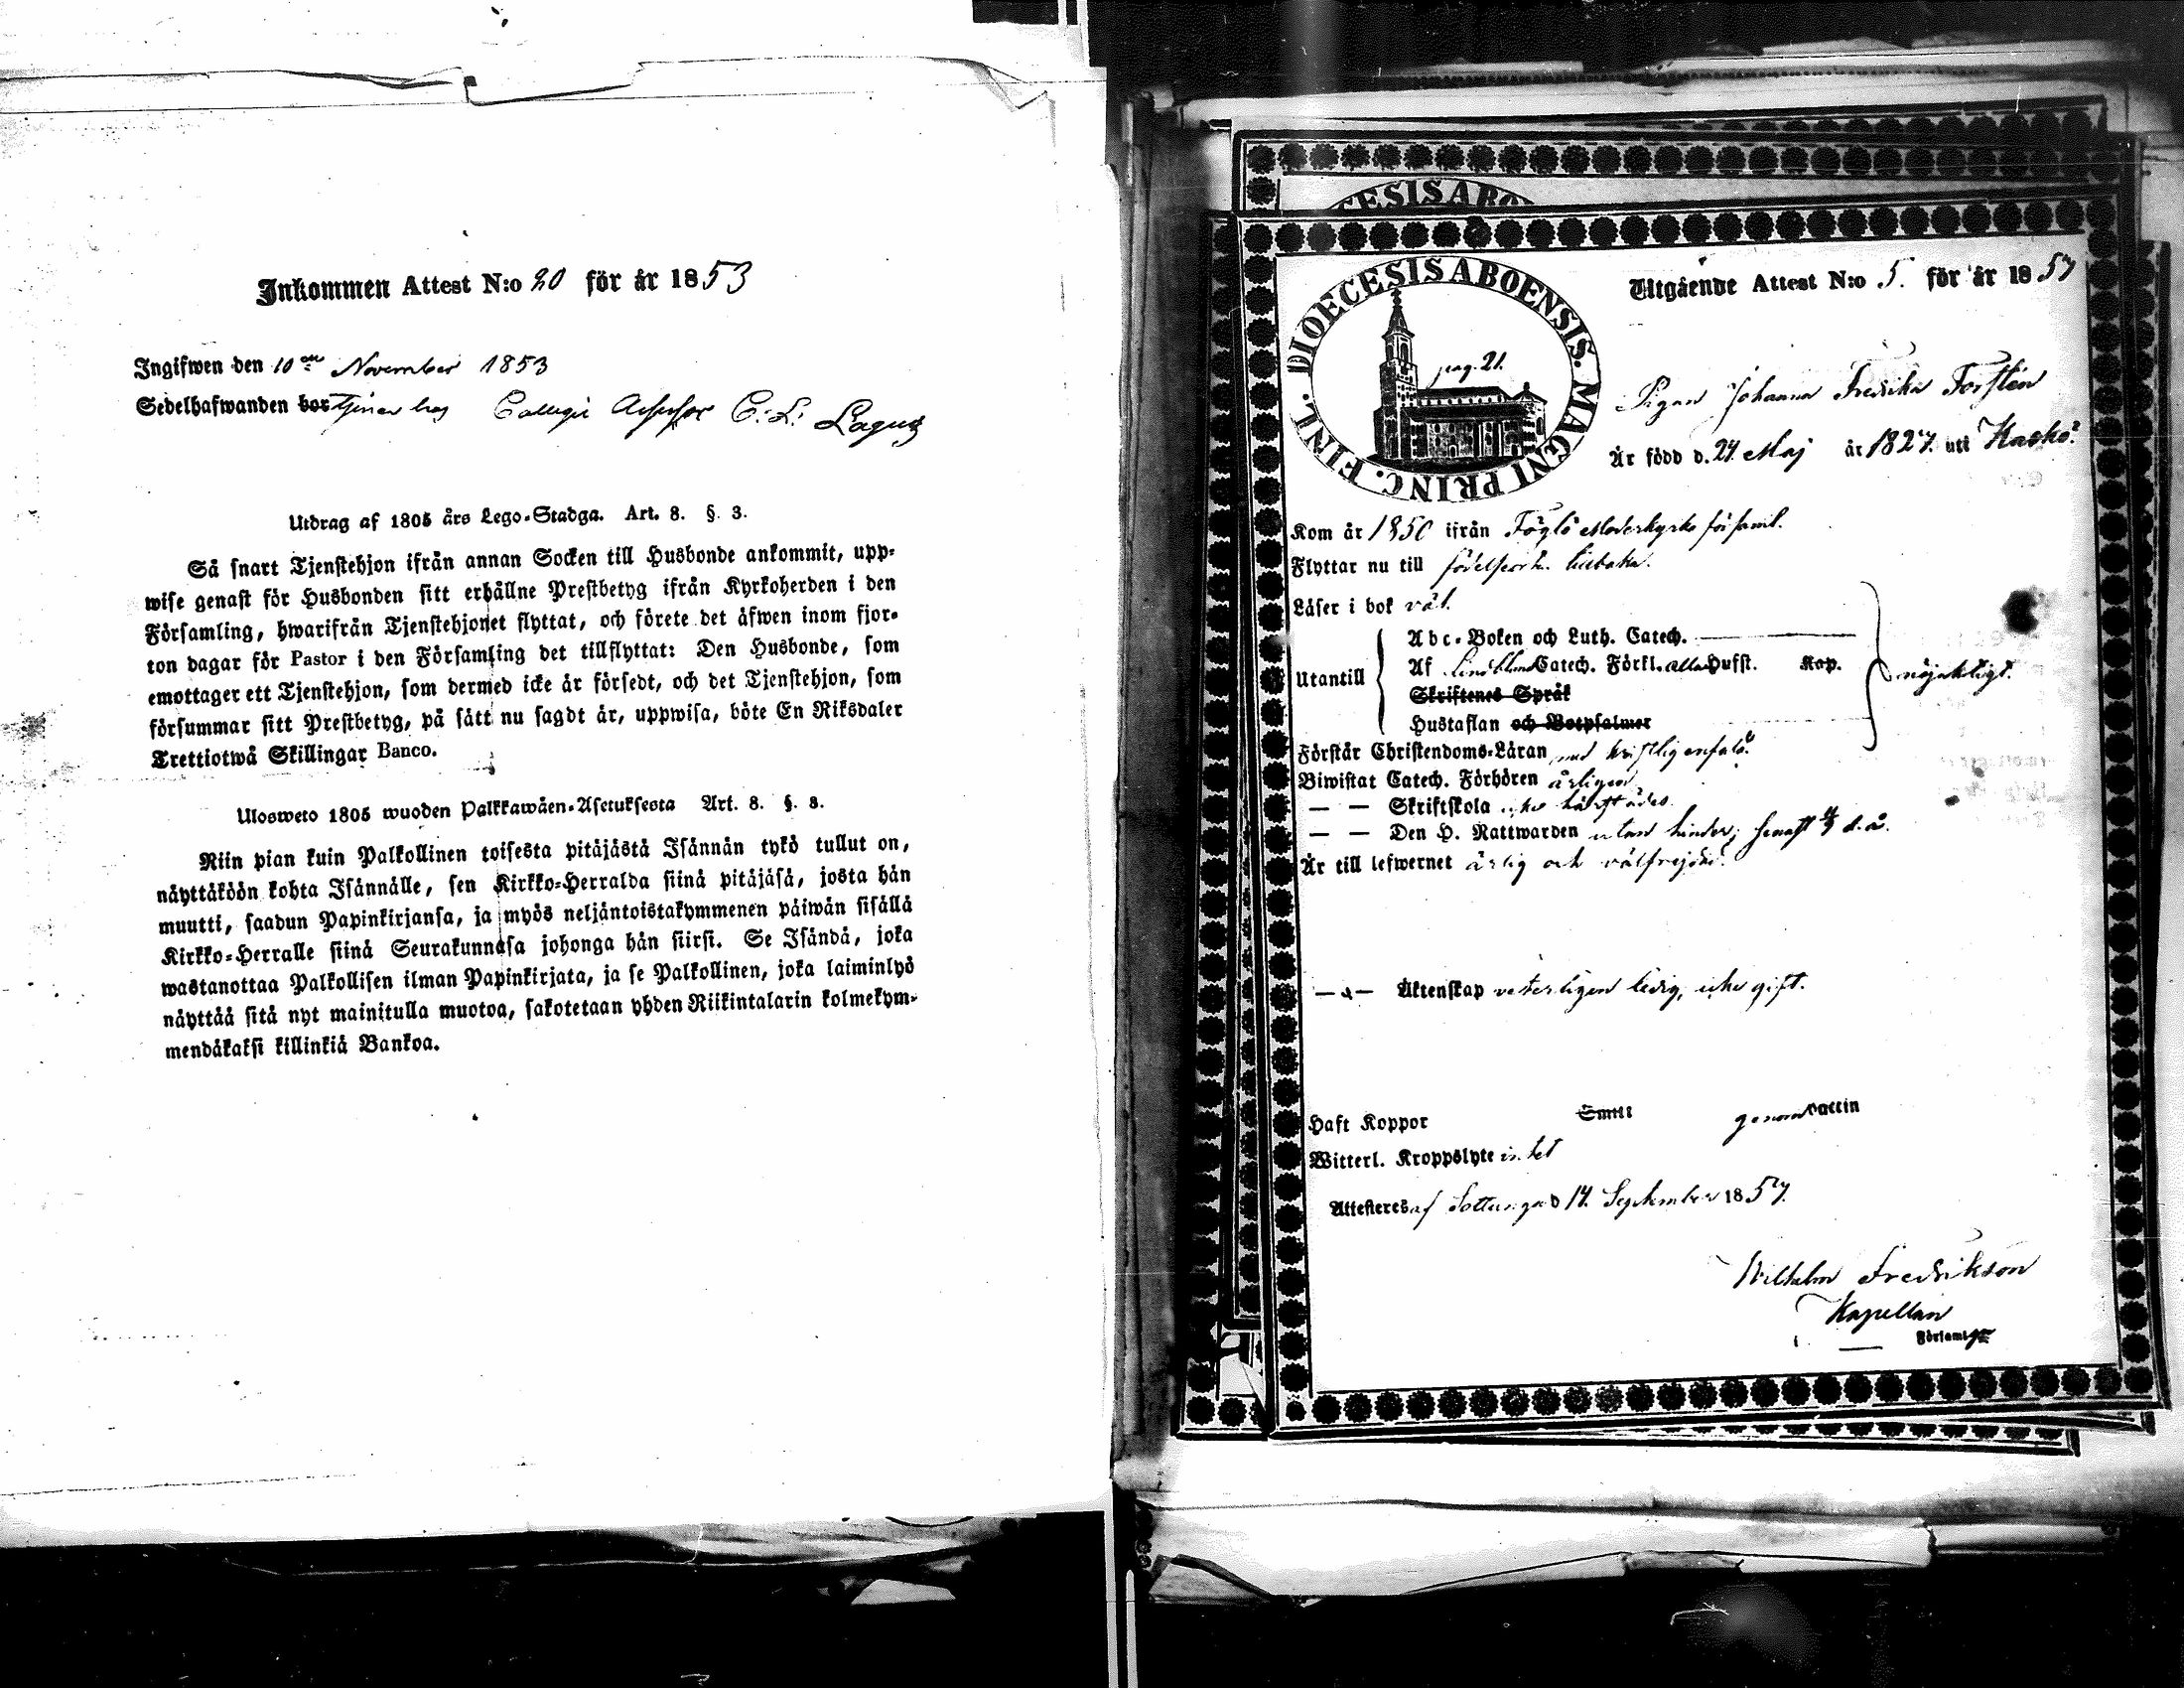 Inkommen Attest N:o 20 för år 1853
Ingifwen den 10 November 1853
Sedelhafwanden bor tjenar hos Collegii Assessor C: L: Lagus
Utdrag af 1805 års Lego-Stadga. Art. 8. §. 3.
Så snart Tjenstehjon ifrån annan Socken till Husbonde ankommit, upp-
wise genast för Husbonden sitt erhållne Prestbetyg ifrån Kyrkoherden i den
Församling, hwarifrån Tjenstehjonet flyttat, och förete det äfwen inom fjor-
ton dagar för Pastor i den Församling det tillflyttat: Den Husbonde, som
emottager ett Tjenstehjon, som dermed icke är försedt, och det Tjenstehjon, som
försummar sitt Prestbetyg, på sätt nu sagdt är, uppwisa, böte En Riksdaler
Trettiotwå Skillingar Banco.
Ulosweto 1805 wuoden Palkkawäen-Asetuksesta Art. 8. §. 3.
Niin pian kuin Palkollinen toisesta pitäjästä Isännän tykö tullut on,
näyttäköön kohta Isännälle, sen Kirkko-Herralda siinä pitäjäsä, josta hän
muutti, saadun Papinkirjansa, ja myös neljäntoistakymmenen päiwän sisällä
Kirkko-Herralle siinä Seurakunnasa johonga hän siirsi. Se Isändä, joka
wastanottaa Palkollisen ilman Papinkirjata, ja se Palkollinen, joka laiminlyö
näyttää sitä nyt mainitulla muotoa, sakotetaan yhden Riikintalarin kolmekym-
mendäkaksi killinkiä Bankoa.
CESIS ABO
DIOECESIS ABOENSIS. MAGNI PRINC. FINL.
pag. 21.
Utgående Attest N:o 5. för år 1857
Pigan Johanna Fredrika Forstén
Är född d. 24 Maj år 1827. uti Kaskö.
Kom år 1850 ifrån Föglö Moderkyrko församl.
Flyttar nu till födelseort. tillbaka.
Läser i bok väl.
Utantill
Abc-Boken och Luth. Catech.
Af Catech. Förkl. alla Hufst. Kap. nöjaktigt.
Skriftenes Språk
Hustaflan och Botpsalmer
Förstår Christendoms-Läran med kristlig enfald.
Biwistat Catech. Förhören årligen
— — Skriftskola
— — Den H. Nattwarden utan hinder, senast d. å.
Är till lefwernet ärlig och välfrejdad.
— „ — Äktenskap veterligen ledig, icke gift.
Haft Koppor Smitt genom Vaccin
Witterl. Kroppslyte intet
Attesteres af Sottunga d 14. September 1857.
Wilhelm Fredrikson
Kapellan
Församl